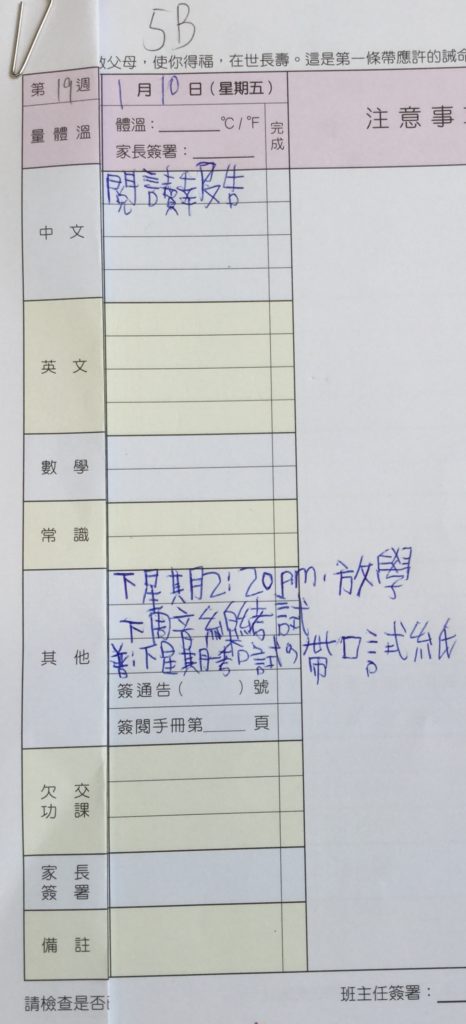 5B
敬父母，使你得福，在世長壽。這是第一條帶應許的誡命
第19週
1月10日(星期五)
量體溫
體溫：______℃/℉
家長簽署：______
完成
注意事
中文
閱讀報告
英文
數學
常識
其他
下星期2:20pm.放學
下周音樂考試
普:下星期考口試,帶口試紙
簽通告( )號
簽閱手冊第____頁
欠交功課
家長簽署
備註
請檢查是否
班主任簽署：